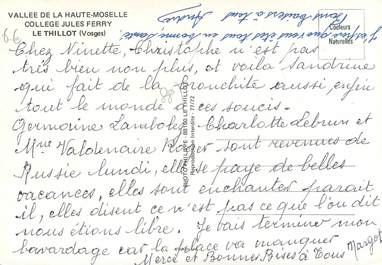 VALLEE DE LA HAUTE-MOSELLE
COLLEGE JULES FERRY
LE THILLOT (Vosges)
Couleurs
Naturelles
66
j'espère que vous êtes tous en bonne santé
à tous Sandrine
Chez Ninette, Christophe n'est pas
très bien non plus, et voila Sandrine
qui fait de la bronchite aussi, enfin
tout le monde a ces soucis.
Germaine Lambolez Charlotte Lebrun et
Mme Valdenaire Roger sont revenues de
Russie lundi, elle se paye de belles
vacances, elles sont enchanter parait
il, elles disent ce n'est pas ce que l'on dit
nous étions libre. Je vais terminer mon
bavardage car la place va manquer
Merci et Bonnes Bises à Tous Margot